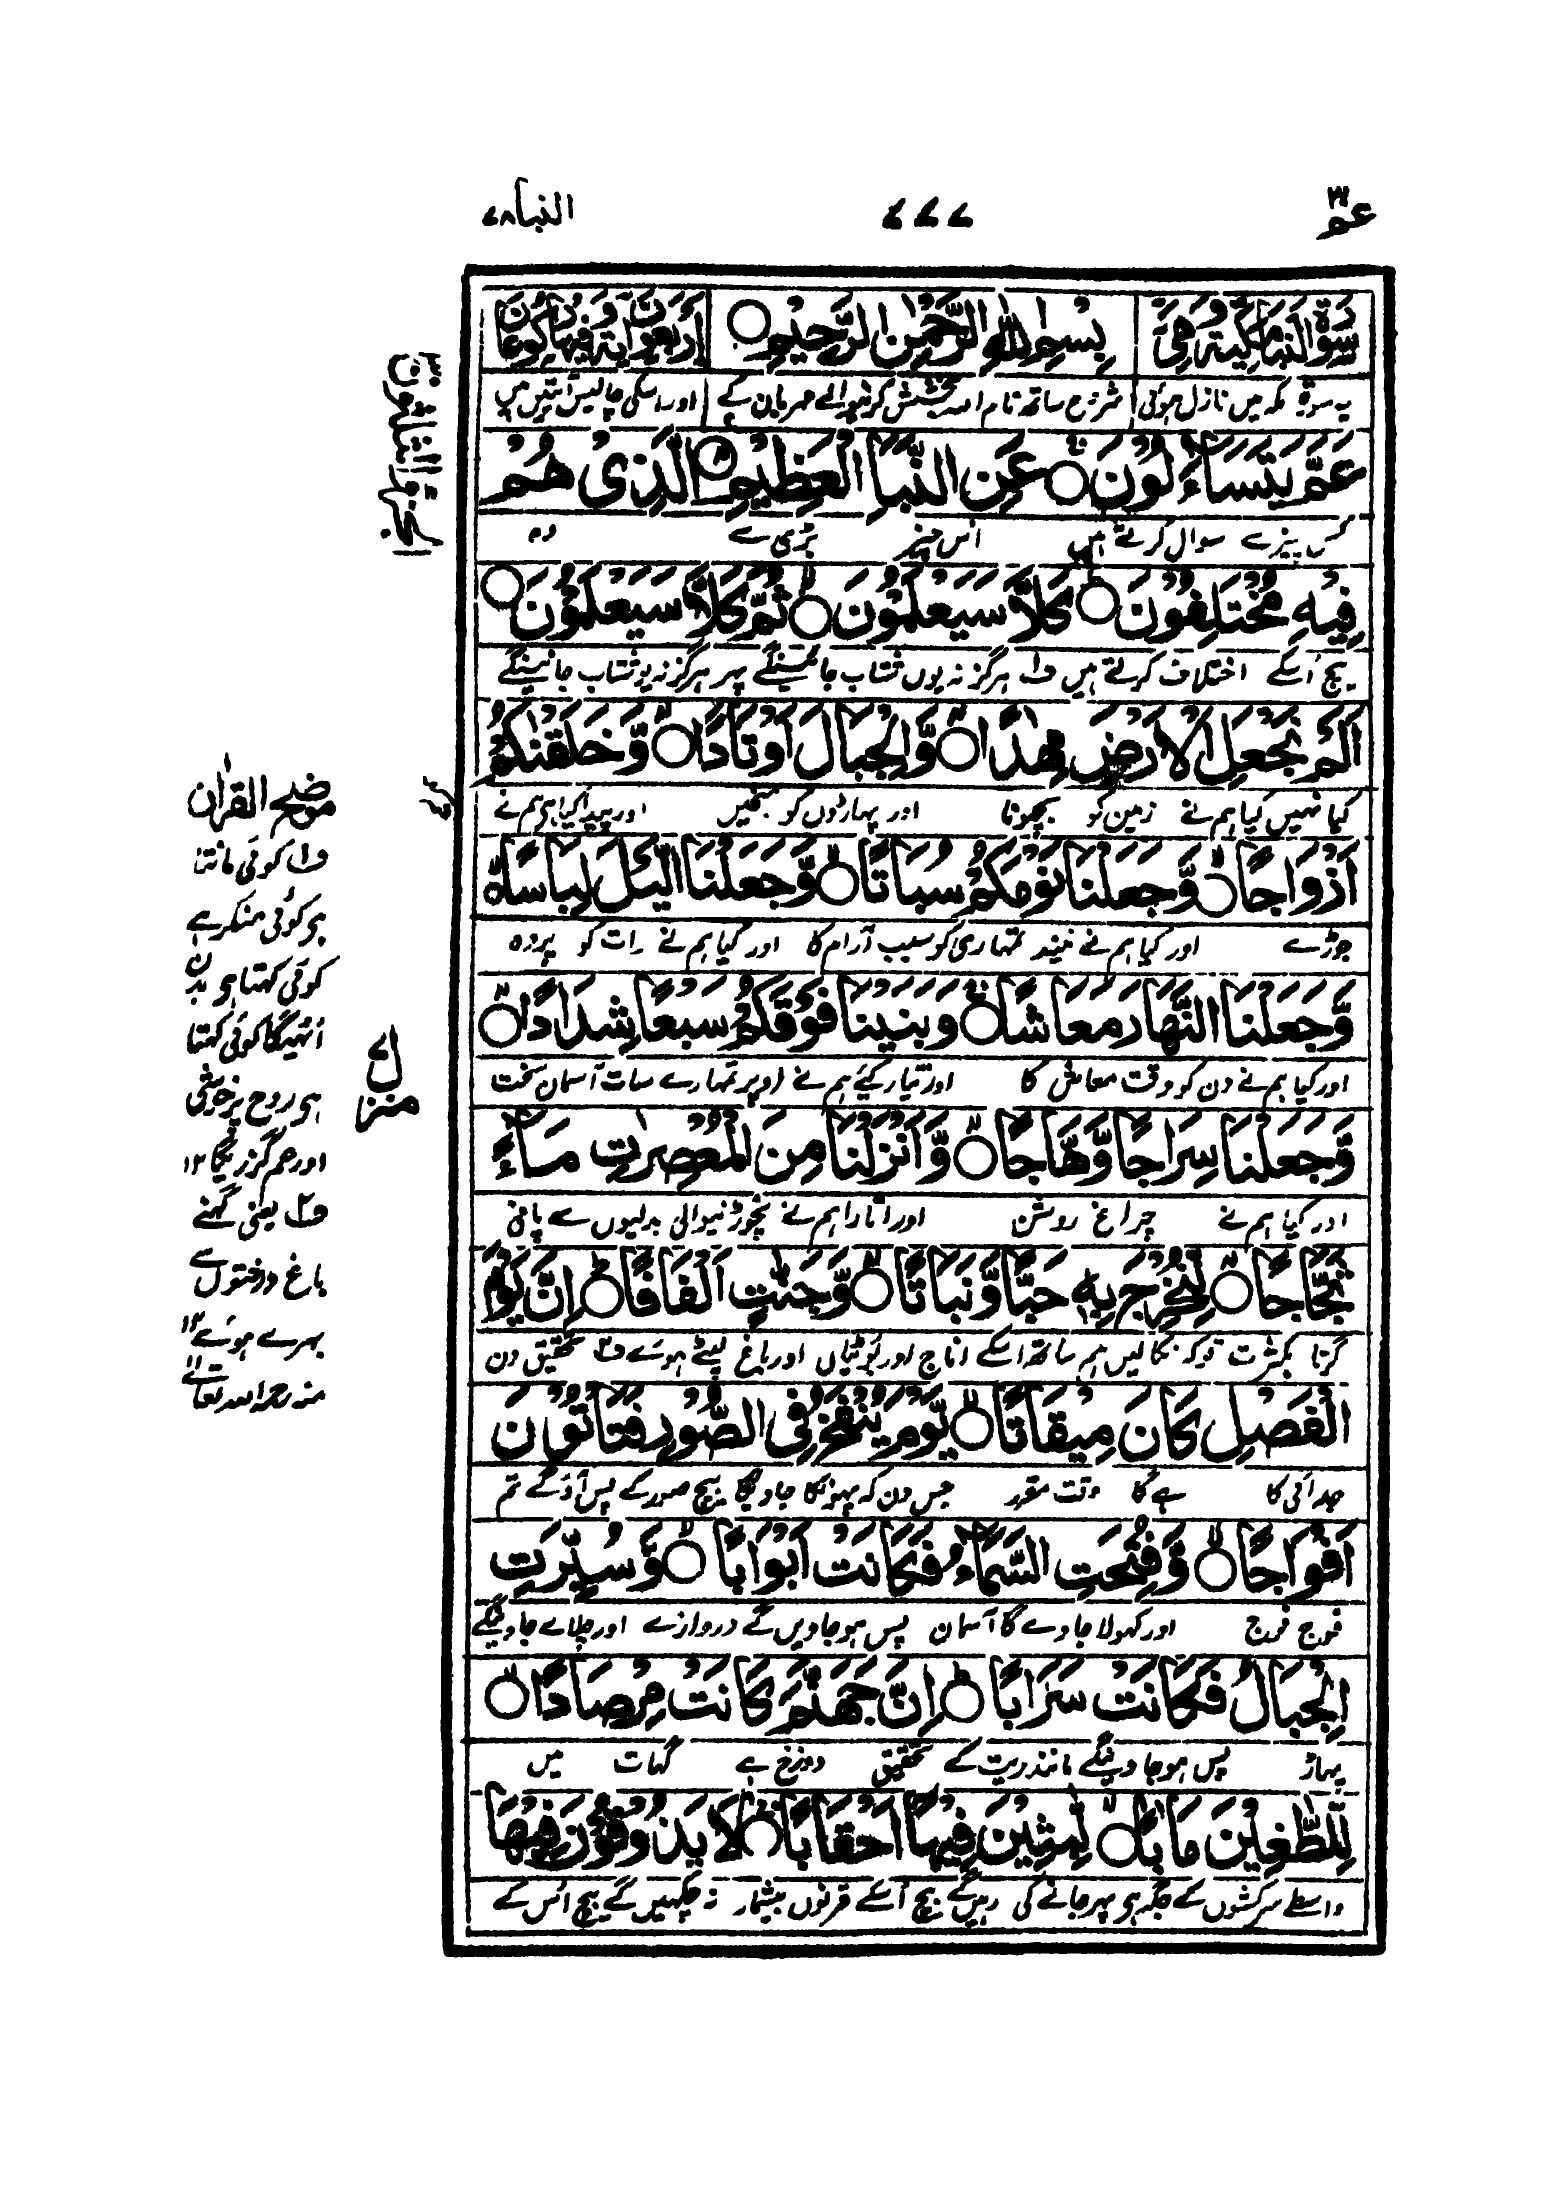 عم ۳۰
۷۷۷
النبا ۷۸
سُوْرَةُ النَّبَاِ مَكِّيَّةٌ وَّهِيَ
بِسْمِ اللّٰهِ الرَّحْمٰنِ الرَّحِيْمِ
اَرْبَعُوْنَ اٰيَةً وَّفِيْهَا رُكُوْعَانِ
یہ سورۃ مکہ میں نازل ہوئی
شروع ساتھ نام اللہ بخشش کرنیوالے مہربان کے
اور اسکی چالیس آیتیں ہیں
عَمَّ يَتَسَآءَلُوْنَ عَنِ النَّبَاِ الْعَظِيْمِ الَّذِىْ هُمْ
کس چیز سے سوال کرتے ہیں اس چیز بڑی سے وہ
فِيْهِ مُخْتَلِفُوْنَ كَلَّا سَيَعْلَمُوْنَ ثُمَّ كَلَّا سَيَعْلَمُوْنَ
بیچ اسکے اختلاف کرتے ہیں ف۱ ہرگز نہ یوں شتاب جانینگے پہر ہرگز نہ یوں شتاب جانینگے
اَلَمْ نَجْعَلِ الْاَرْضَ مِهٰدًا وَّالْجِبَالَ اَوْتَادًا وَّخَلَقْنٰكُمْ
کیا نہیں کیا ہم نے زمین کو بچھونا اور پہاڑوں کو میخیں اور پیدا کیا ہی ہم نے
اَزْوَاجًا وَّجَعَلْنَا نَوْمَكُمْ سُبَاتًا وَّجَعَلْنَا الَّيْلَ لِبَاسًا
جوڑے اور کیا ہم نے نیند تمہاری کو سبب آرام کا اور کیا ہم نے رات کو پردہ
وَّجَعَلْنَا النَّهَارَ مَعَاشًا وَبَنَيْنَا فَوْقَكُمْ سَبْعًا شِدَادًا
اور کیا ہم نے دن کو وقت معاش کا اور تیار کیئے ہم نے اوپر تمہارے سات آسمان سخت
وَّجَعَلْنَا سِرَاجًا وَّهَّاجًا وَّاَنْزَلْنَا مِنَ الْمُعْصِرٰتِ مَآءً
اور کیا ہم نے چراغ روشن اور اتارا ہم نے نچوڑنیوالی بدلیوں سے پانی
ثَجَّاجًا لِّنُخْرِجَ بِهٖ حَبًّا وَّنَبَاتًا وَّجَنّٰتٍ اَلْفَافًا اِنَّ يَوْمَ
گرتا بکثرت توکہ نکالیں ہم ساتھ اسکے اناج اور بوٹیاں اور باغ لپٹے ہوئے ف۲ تحقیق دن
الْفَصْلِ كَانَ مِيْقَاتًا يَّوْمَ يُنْفَخُ فِى الصُّوْرِ فَتَاْتُوْنَ
جدائی کا ہے گا وقت مقرر جس دن کہ پہونکا جاویگا بیچ صور کے پس آؤ گے تم
اَفْوَاجًا وَّفُتِحَتِ السَّمَآءُ فَكَانَتْ اَبْوَابًا وَّسُيِّرَتِ
فوج فوج اور کہولا جاوے گا آسمان پس ہوجاویں گے دروازے اور چلائے جاوینگے
الْجِبَالُ فَكَانَتْ سَرَابًا اِنَّ جَهَنَّمَ كَانَتْ مِرْصَادًا
پہاڑ پس ہوجاوینگے مانند ریت کے تحقیق دوزخ ہے گہات میں
لِّلطّٰغِيْنَ مَاٰبًا لّٰبِثِيْنَ فِيْهَآ اَحْقَابًا لَا يَذُوْقُوْنَ فِيْهَا
واسطے سرکشوں کے جگہ ہی پہر جانے کی رہیں گے بیچ اسکے قرنوں بیشمار نہ چکہیں گے بیچ اس کے
موضح القرآن
ف۱ کوئی مانتا
ہی کوئی منکر ہے
کوئی کہتا ہی بدن
اٹہیگا کوئی کہتا
ہی روح پر خوشی
اور غم گزریگا ۱۲
ف۲ یعنی گہنے
باغ درختوں سے
بہرے ہوئے ۱۲
منہ رحمہ اللہ تعالےٰ
منزل ۷